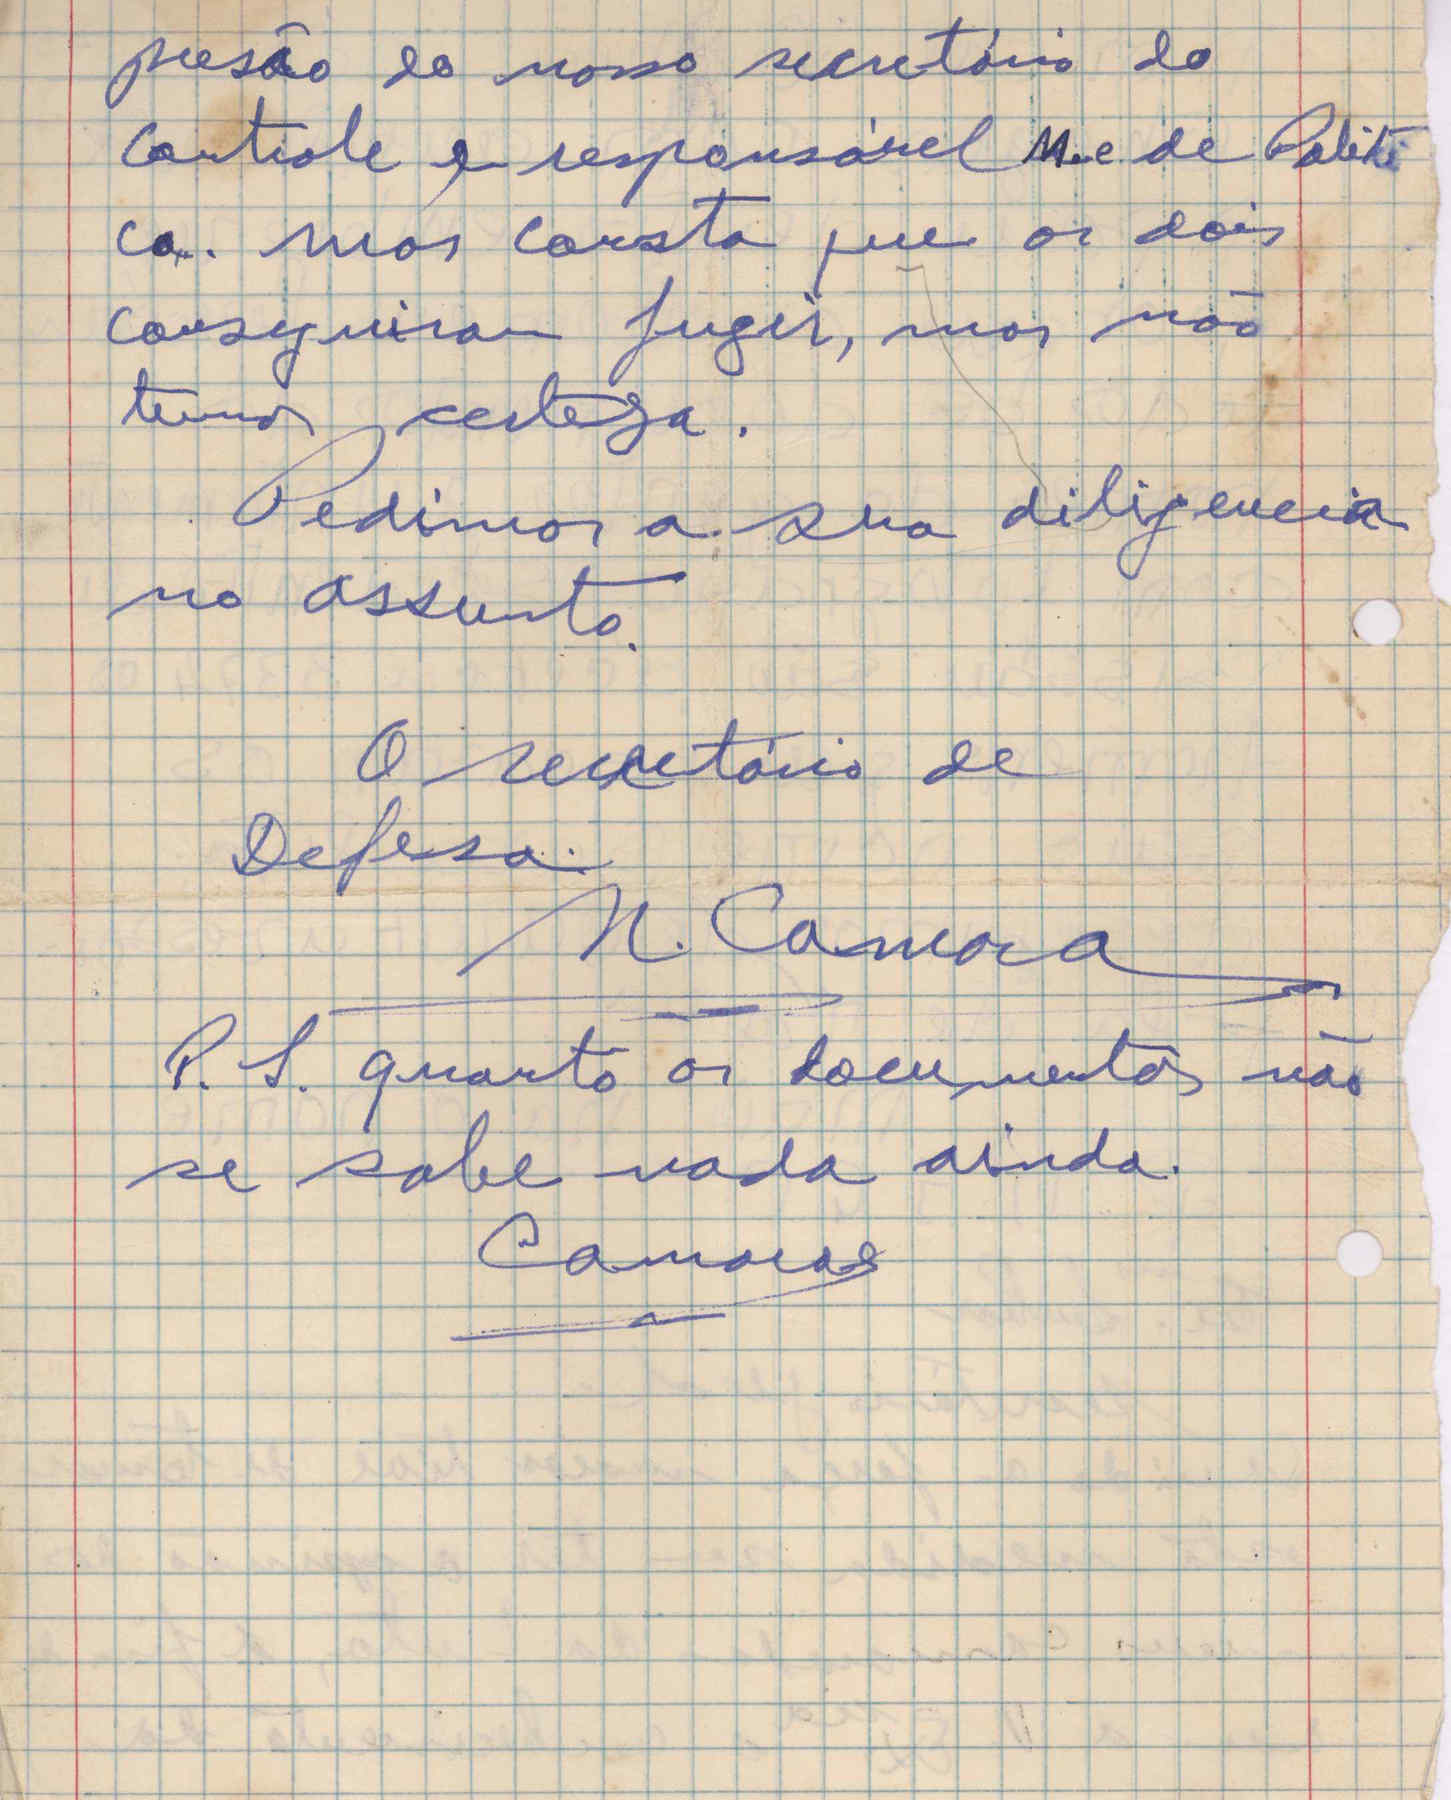 prisão do nosso secretário do
controle e responsável de Politi
ca. mas consta que os dois
conseguiram fugir, mas não
temos certeza.
Pedimos a sua diligencia
no assunto.
O secretário de
Defesa.
N. Camara
P. S. quanto os documentos não
se sabe nada ainda.
Camara